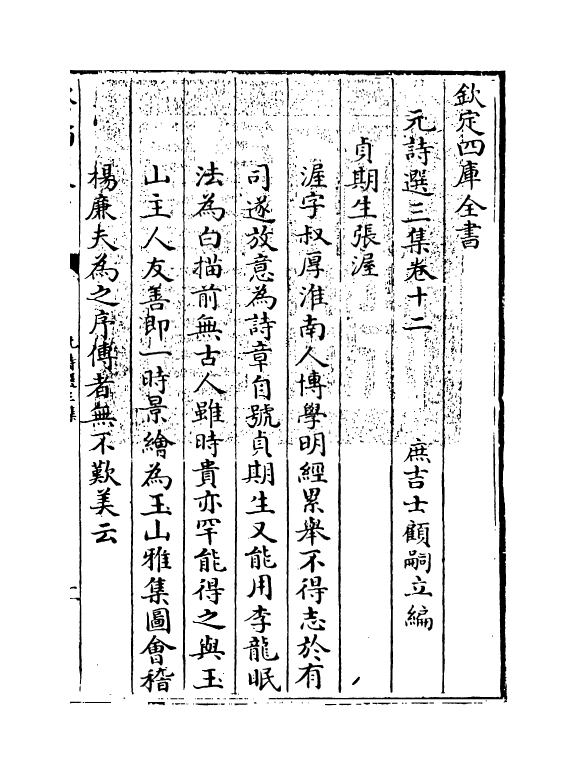 欽定四庫全書
元詩選三集卷十二
庶吉士顧嗣立編
貞期生張渥
渥字叔厚淮南人博學明經累舉不得志於有
司遂放意為詩章自號貞期生又能用李龍眠
法為白描前無古人雖時貴亦罕能得之與玉
山主人友善即一時景繪為玉山雅集圖會稽
楊廉夫為之序傳者無不歎美云